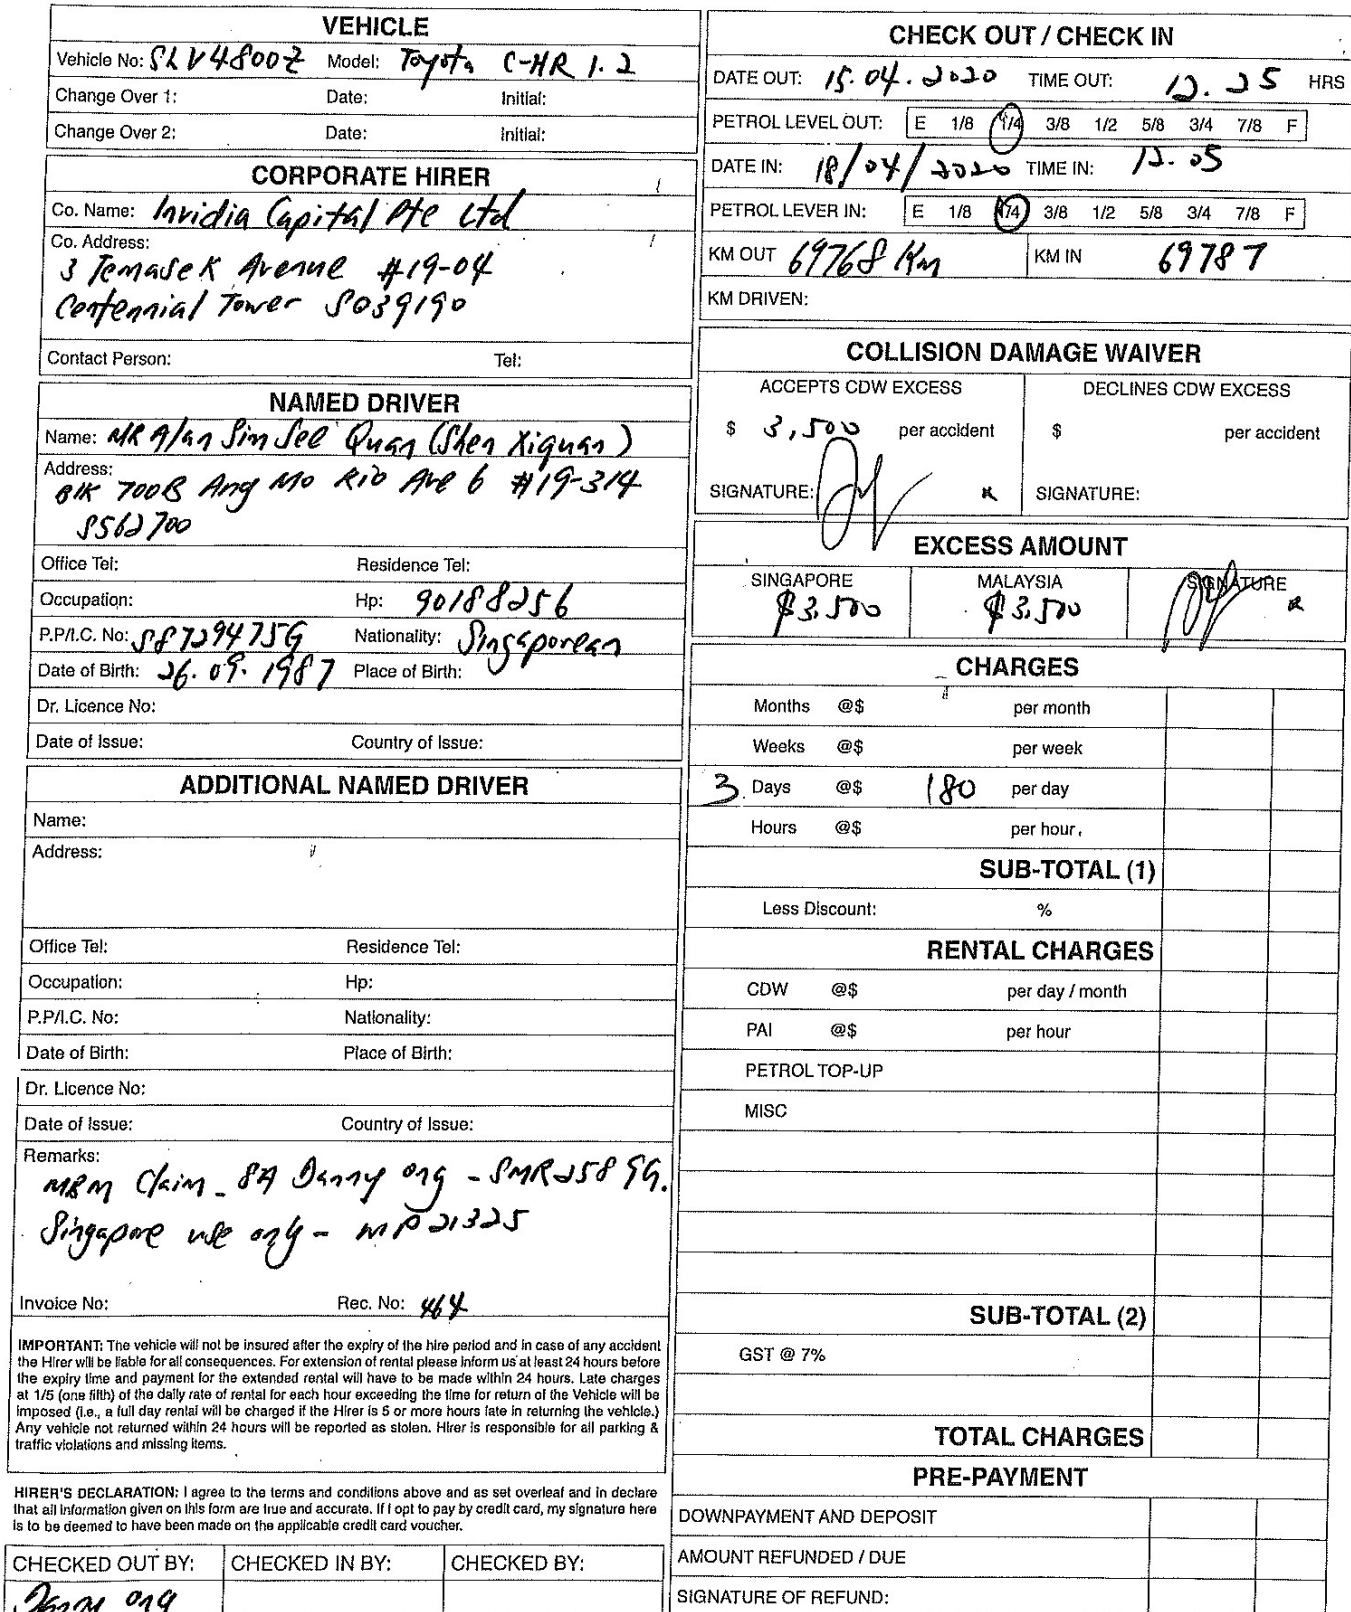 VEHICLE
Vehicle No: SLV4800Z Model: Toyota C-HR 1.2
Change Over 1: Date: Initial:
Change Over 2: Date: Initial:
CORPORATE HIRER
Co. Name: Invidia Capital Pte Ltd
Co. Address:
3 Temasek Avenue #19-04
Centennial Tower S039190
Contact Person: Tel:
NAMED DRIVER
Name: MR Alan Sim See Quan (Shen Xiquan)
Address:
Blk 700B Ang Mo Kio Ave 6 #19-314
S562700
Office Tel: Residence Tel:
Occupation: Hp: 90188256
P.P/I.C. No: S8729475G Nationality: Singaporean
Date of Birth: 26.09.1987 Place of Birth:
Dr. Licence No:
Date of Issue: Country of Issue:
ADDITIONAL NAMED DRIVER
Name:
Address:
Office Tel: Residence Tel:
Occupation: Hp:
P.P/I.C. No: Nationality:
Date of Birth: Place of Birth:
Dr. Licence No:
Date of Issue: Country of Issue:
Remarks:
MBM Claim - SA Danny Ong - SMR2589G.
Singapore use only - MP21325
Invoice No: Rec. No: 464
IMPORTANT: The vehicle will not be insured after the expiry of the hire period and in case of any accident
the Hirer will be liable for all consequences. For extension of rental please inform us at least 24 hours before
the expiry time and payment for the extended rental will have to be made within 24 hours. Late charges
at 1/5 (one fifth) of the daily rate of rental for each hour exceeding the time for return of the Vehicle will be
imposed (i.e., a full day rental will be charged if the Hirer is 5 or more hours late in returning the vehicle.)
Any vehicle not returned within 24 hours will be reported as stolen. Hirer is responsible for all parking &
traffic violations and missing items.
HIRER'S DECLARATION: I agree to the terms and conditions above and as set overleaf and in declare
that all information given on this form are true and accurate. If I opt to pay by credit card, my signature here
is to be deemed to have been made on the applicable credit card voucher.
CHECKED OUT BY: CHECKED IN BY: CHECKED BY:
Danny Ong
CHECK OUT / CHECK IN
DATE OUT: 15.04.2020 TIME OUT: 12.25 HRS
PETROL LEVEL OUT: E 1/8 1/4 3/8 1/2 5/8 3/4 7/8 F
DATE IN: 18/04/2020 TIME IN: 12.05
PETROL LEVER IN: E 1/8 1/4 3/8 1/2 5/8 3/4 7/8 F
KM OUT 69768 Km KM IN 69787
KM DRIVEN:
COLLISION DAMAGE WAIVER
ACCEPTS CDW EXCESS DECLINES CDW EXCESS
$ 3,500 per accident $ per accident
SIGNATURE: x SIGNATURE:
EXCESS AMOUNT
SINGAPORE MALAYSIA SIGNATURE
$3,500 $3,500 x
CHARGES
Months @$ per month
Weeks @$ per week
3 Days @$ 180 per day
Hours @$ per hour
SUB-TOTAL (1)
Less Discount: %
RENTAL CHARGES
CDW @$ per day / month
PAI @$ per hour
PETROL TOP-UP
MISC
SUB-TOTAL (2)
GST @ 7%
TOTAL CHARGES
PRE-PAYMENT
DOWNPAYMENT AND DEPOSIT
AMOUNT REFUNDED / DUE
SIGNATURE OF REFUND: